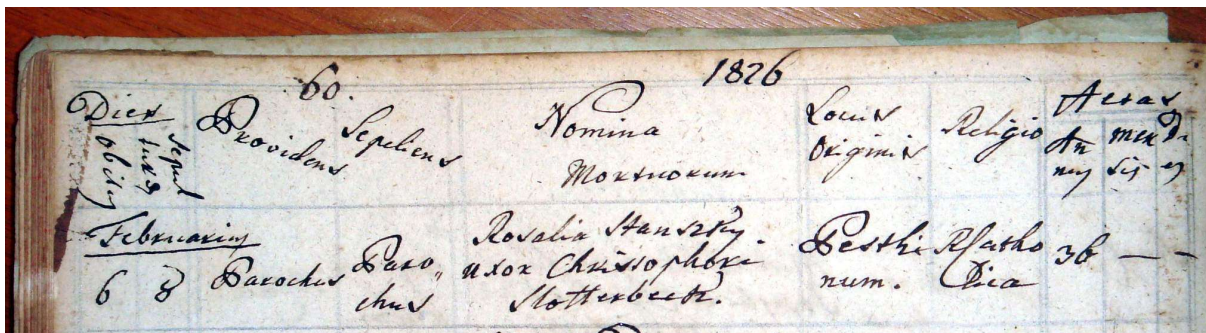 60. 1826
Dies obitus sepulturæ
Providens
Sepeliens
Nomina
Mortuorum
Locus
Originis
Religio
Aetas
Annus
Mensis
Dies
Februarius
6 8
Parochus
Parochus
Rosalia Stanszky
uxor Christophori
Slotterbeck.
Pesthinum.
RCatholica
36 — —